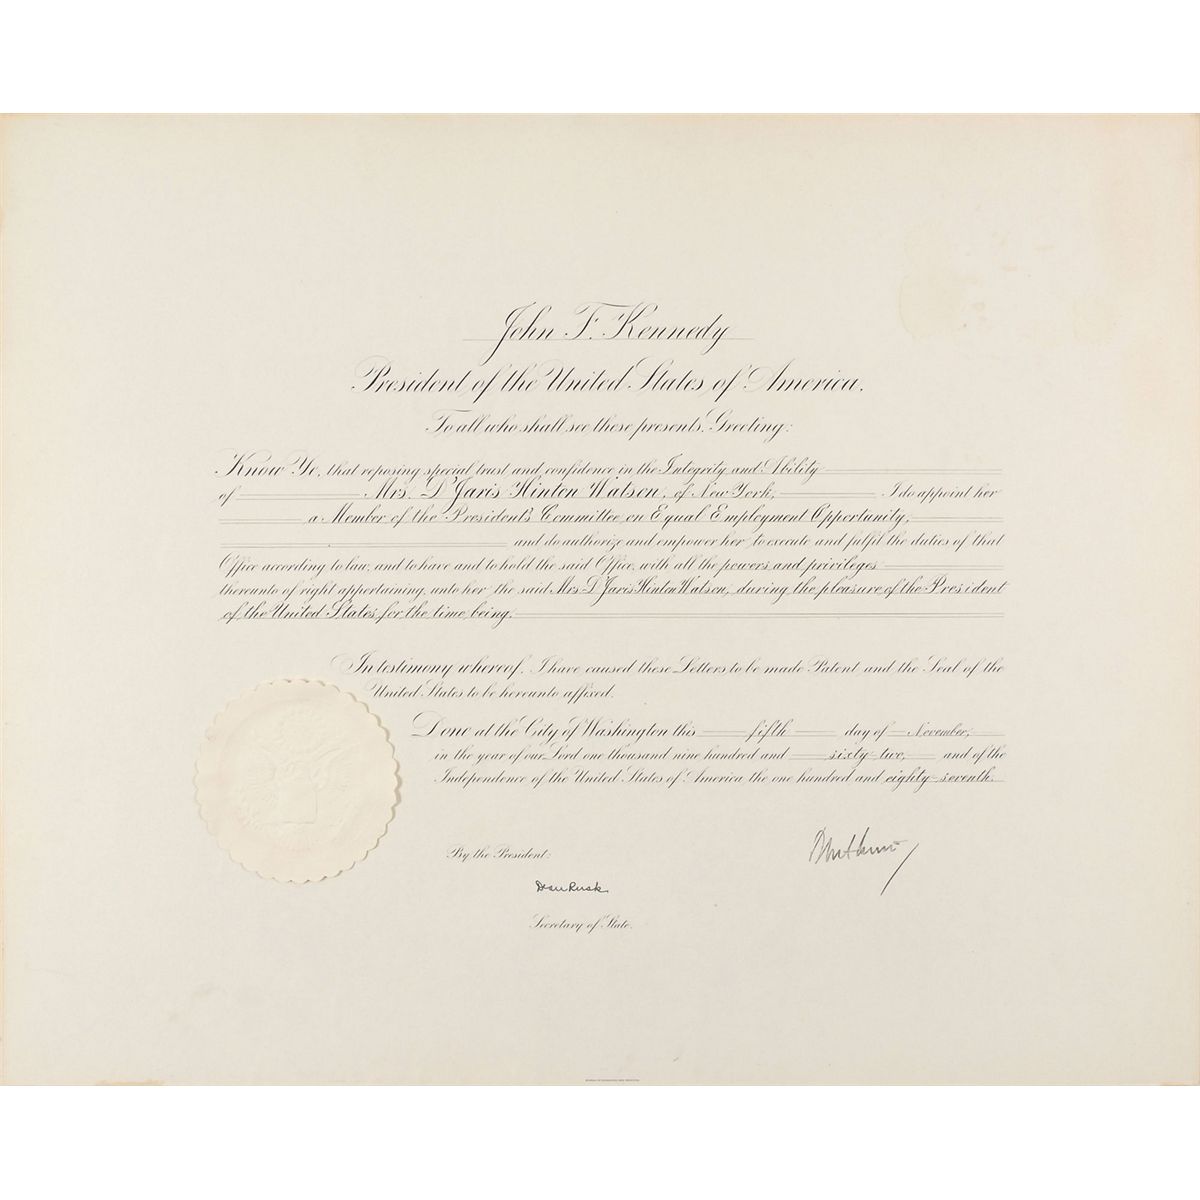 John F. Kennedy
President of the United States of America.
To all who shall see these presents, Greeting:
Know Ye, that reposing special trust and confidence in the Integrity and Ability
of Mrs. D'Jaris Hinton Watson, of New York, I do appoint her
a Member of the President's Committee on Equal Employment Opportunity,
and do authorize and empower her to execute and fulfil the duties of that
Office according to law, and to have and to hold the said Office, with all the powers and privileges
thereunto of right appertaining, unto her the said Mrs. D'Jaris Hinton Watson, during the pleasure of the President
of the United States for the time being.
In testimony whereof, I have caused these Letters to be made Patent and the Seal of the
United States to be hereunto affixed.
Done at the City of Washington this fifth day of November,
in the year of our Lord one thousand nine hundred and sixty-two, and of the
Independence of the United States of America the one hundred and eighty-seventh.
By the President:
Dean Rusk
Secretary of State.